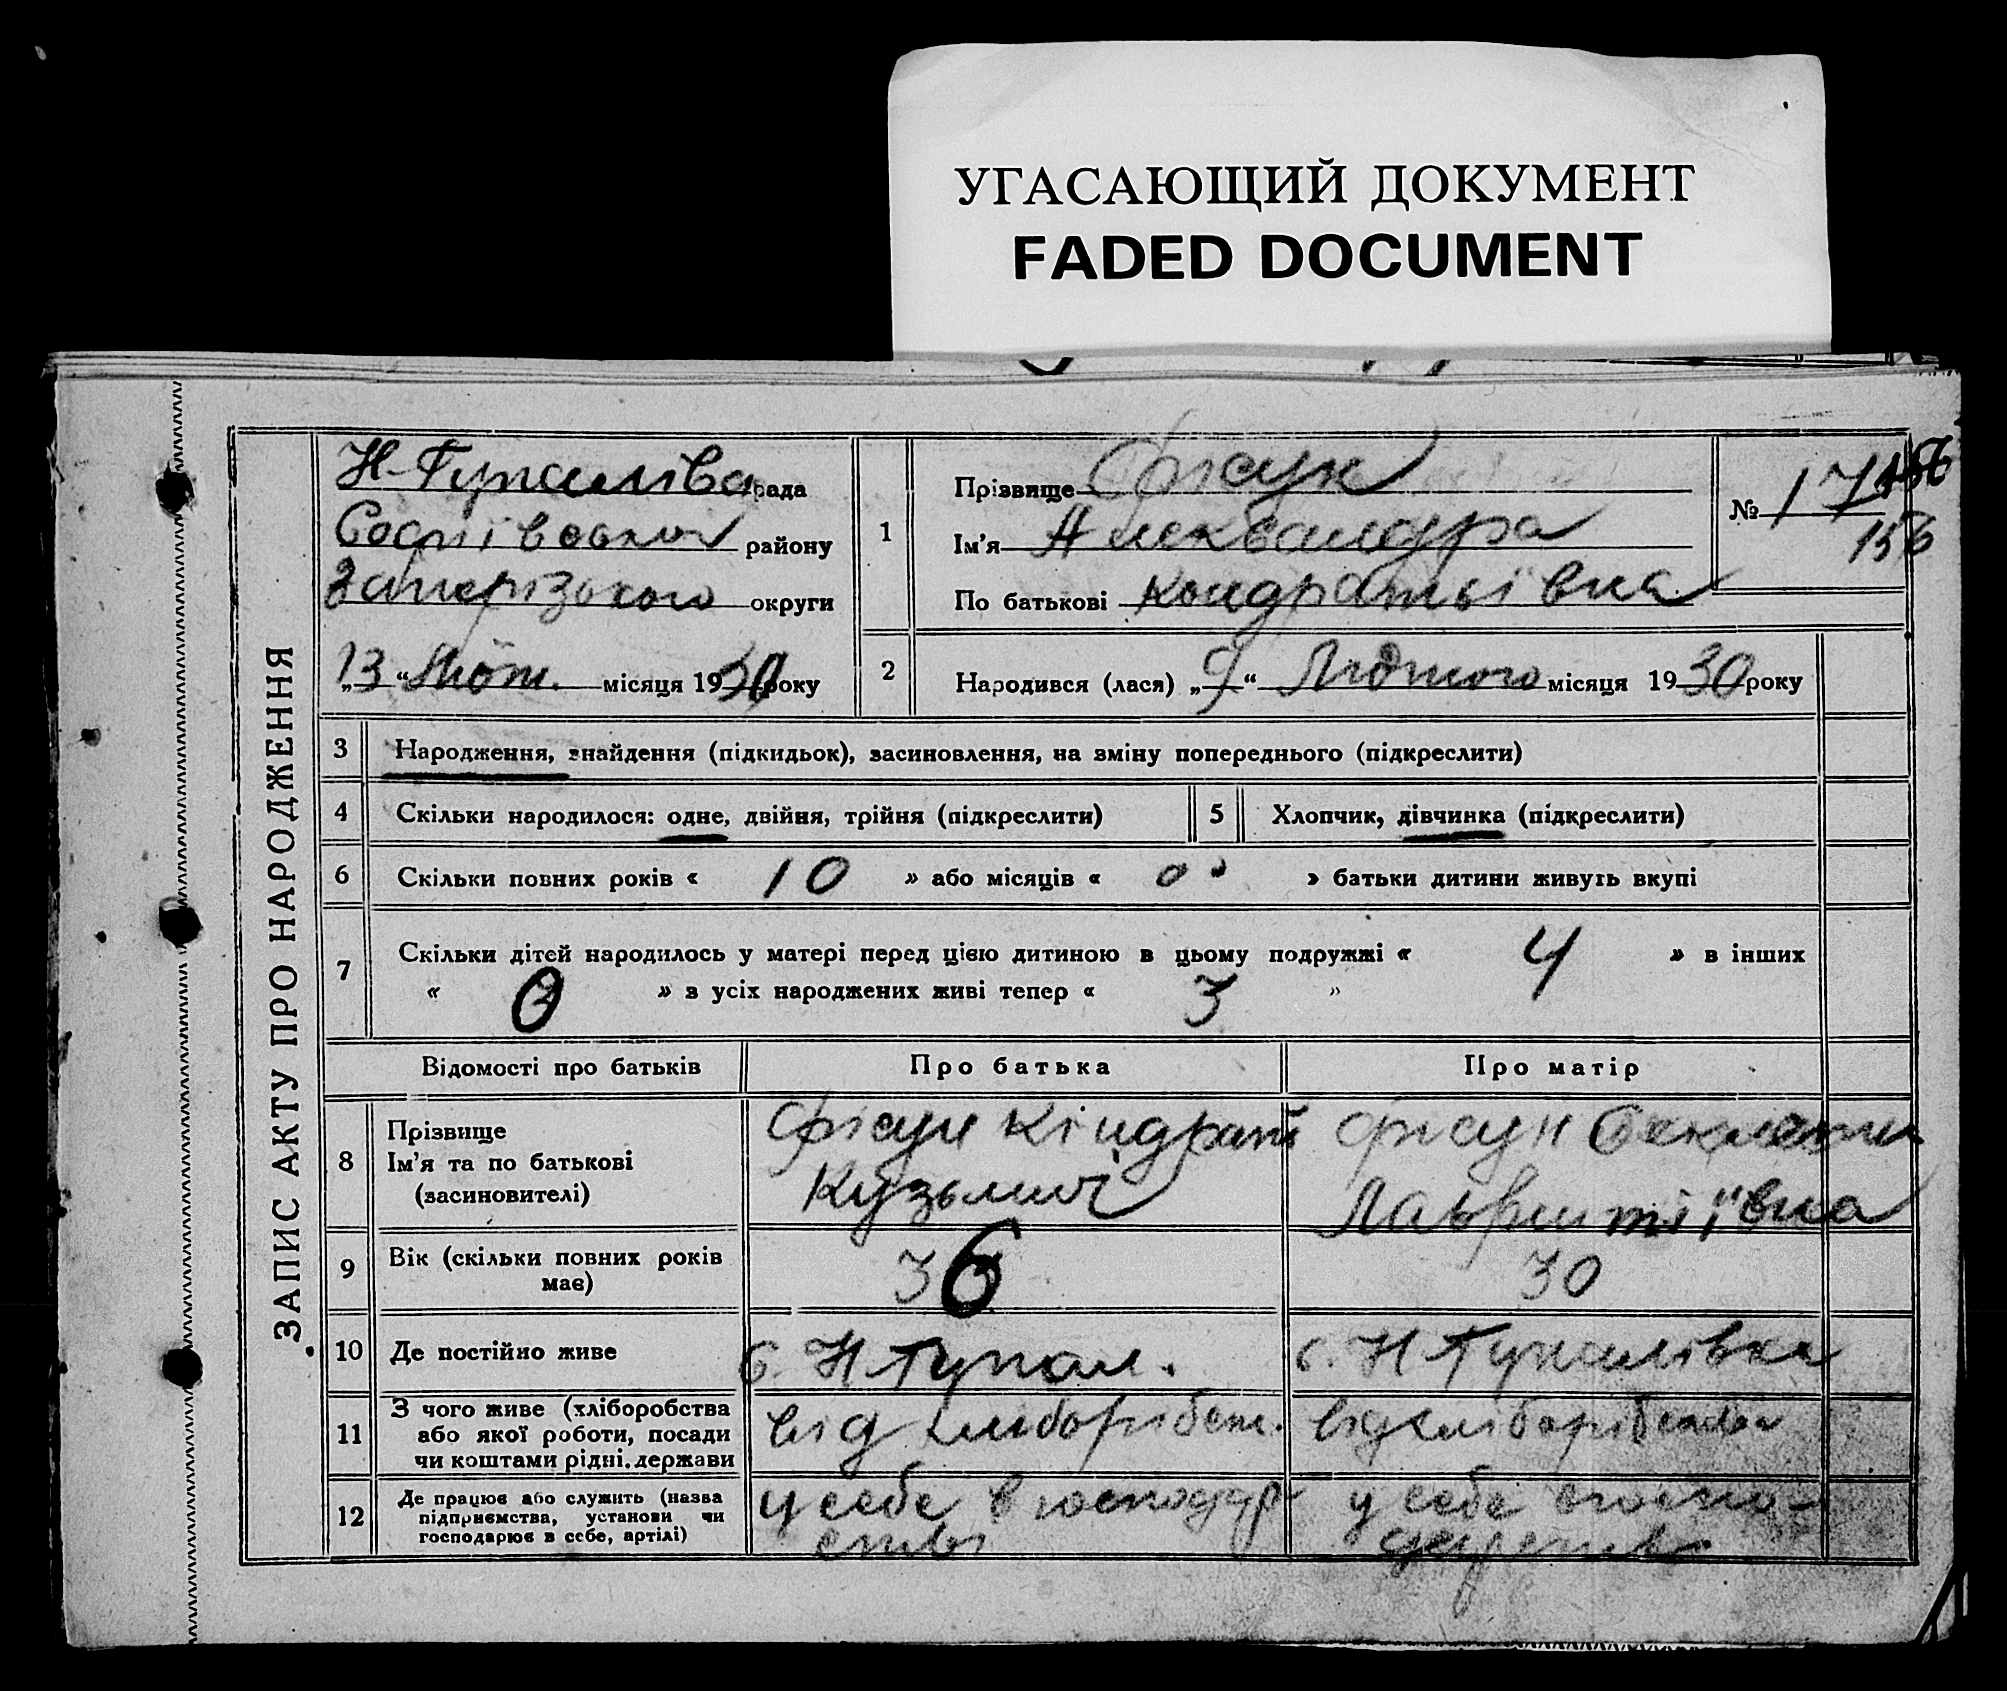 УГАСАЮЩИЙ ДОКУМЕНТ
FADED DOCUMENT
ЗАПИС АКТУ ПРО НАРОДЖЕННЯ
Н-Гупалівка рада
району
Запорізького округи
„13“ Лют. місяця 1930 року
1
Прізвище Фісун
Ім'я Александра
По батькові Кондратьівна
№ 17
156
156
2
Народився (лася) „9“ Лютого місяця 1930 року
3 Народження, знайдення (підкидьок), засиновлення, на зміну попереднього (підкреслити)
4 Скільки народилося: одне, двійня, трійня (підкреслити)
5 Хлопчик, дівчинка (підкреслити)
6 Скільки повних років « 10 » або місяців « 0 » батьки дитини живуть вкупі
7 Скільки дітей народилось у матері перед цією дитиною в цьому подружжі « 4 » в інших
« 0 » з усіх народжених живі тепер « 3 »
Відомості про батьків Про батька Про матір
8 Прізвище
Ім'я та по батькові
(засиновителі)
Фісун Кіндрат
Кузьмич
Фісун
Лаврентіївна
9 Вік (скільки повних років
має)
36
30
10 Де постійно живе
с. Н Гупал.
с. Н Гупалівка
11 З чого живе (хліборобства
або якої роботи, посади
чи коштами рідні, держави
від хліборобст.
від хліборобства
12 Де працює або служить (назва
підприємства, установи чи
господарює в себе, артілі)
у себе в господар
стві
у себе в госпо-
дарстві